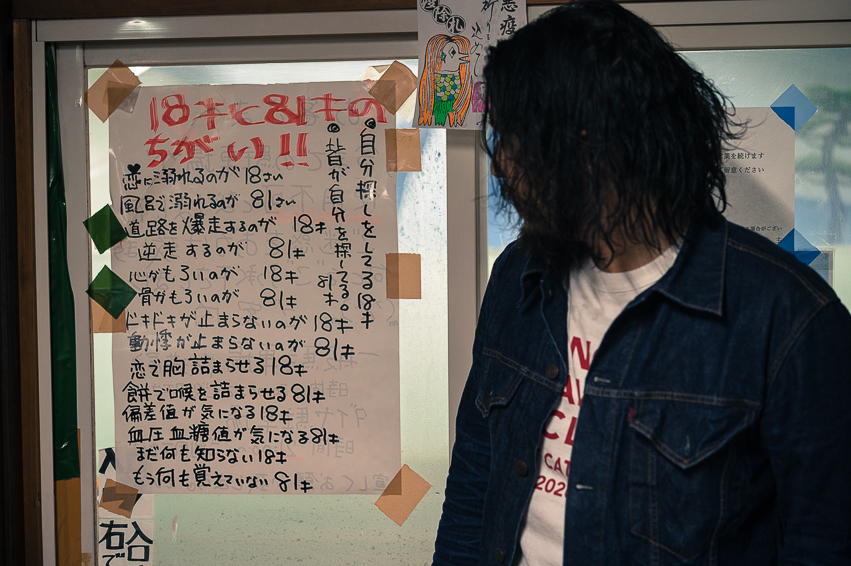 18キと81キの
ちがい!!
恋に溺れるのが18さい
風呂で溺れるのが 81さい
道路を爆走するのが 18キ
逆走するのが 81キ
心がもろいのが 18キ
骨がもろいのが 81キ
ドキドキが止まらないのが18キ
動悸が止まらないのが81キ
恋で胸詰まらせる18キ
餅で喉を詰まらせる81キ
偏差値が気になる18キ
血圧血糖値が気になる81キ
まだ何も知らない18キ
もう何も覚えていない81キ
◎自分探しをしてる18キ
◎皆が自分を探してる。81キ
悪疫
祈り
込
業を続けます
留意ください
CAT
202
入
右で